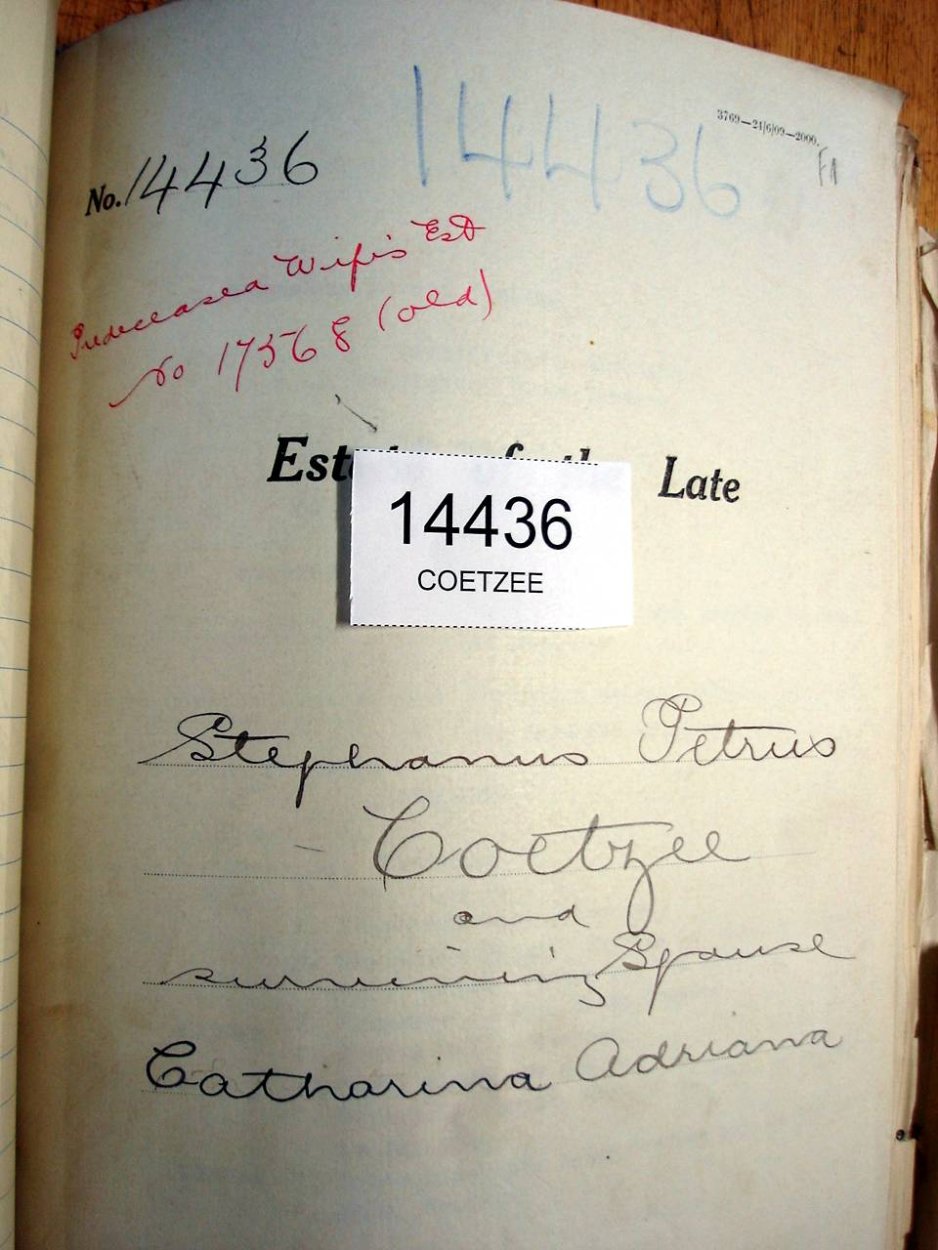 3769—21|6|09—2000.
14436
No. 14436
Predeceased Wife's Est
No 17568 (old)
Late
14436
COETZEE
Stephanus Petrus
Coetzee
and
surviving Spouse
Catharina Adriana